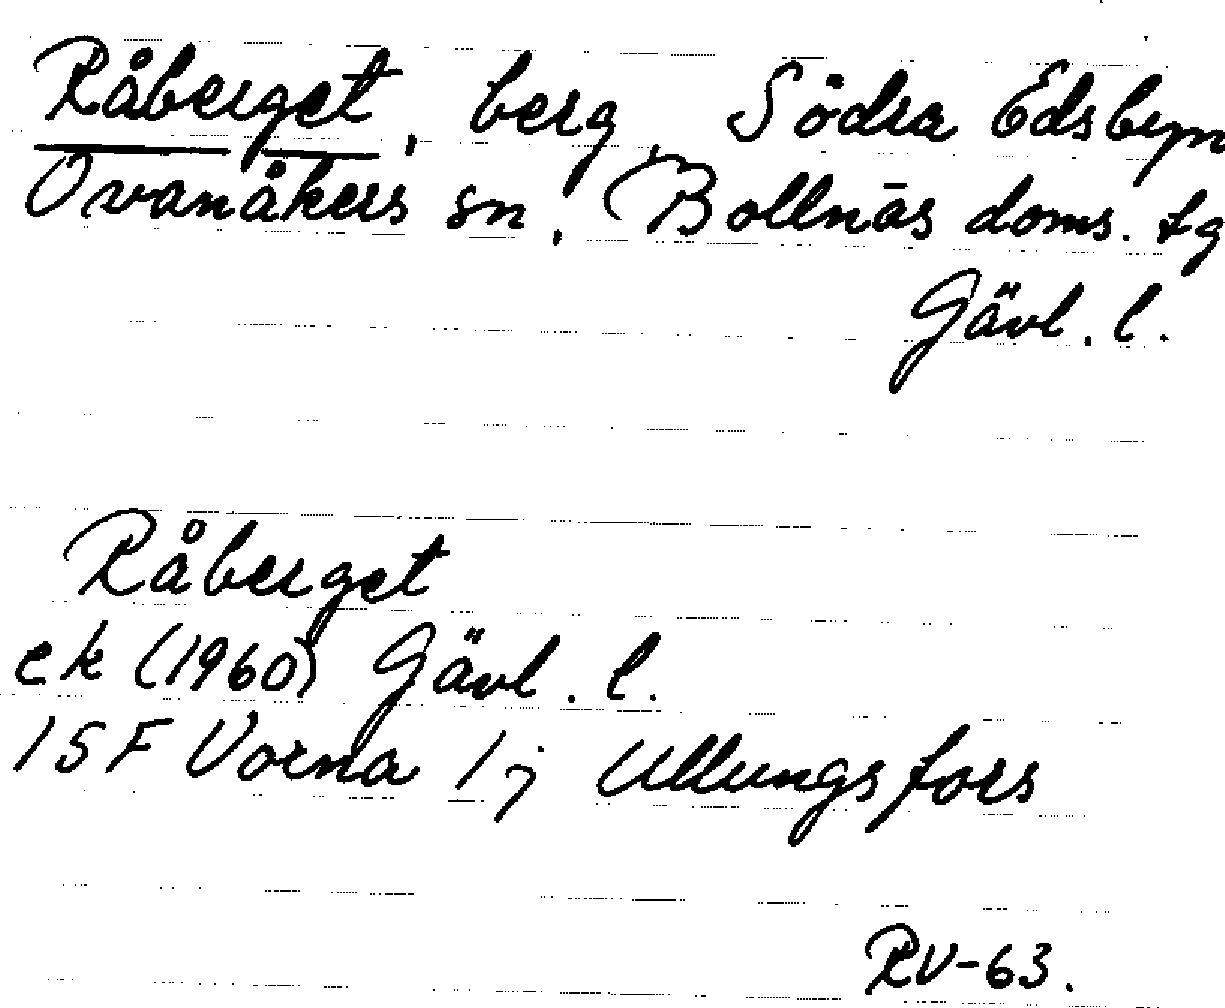 Råberget, berg, Södra Edsbyn
Ovanåkers sn, Bollnäs doms. tg
Gävl. l.
Råberget
ek (1960) Gävl. l.
15F Vorna 1j Ullungsfors
RV-63.